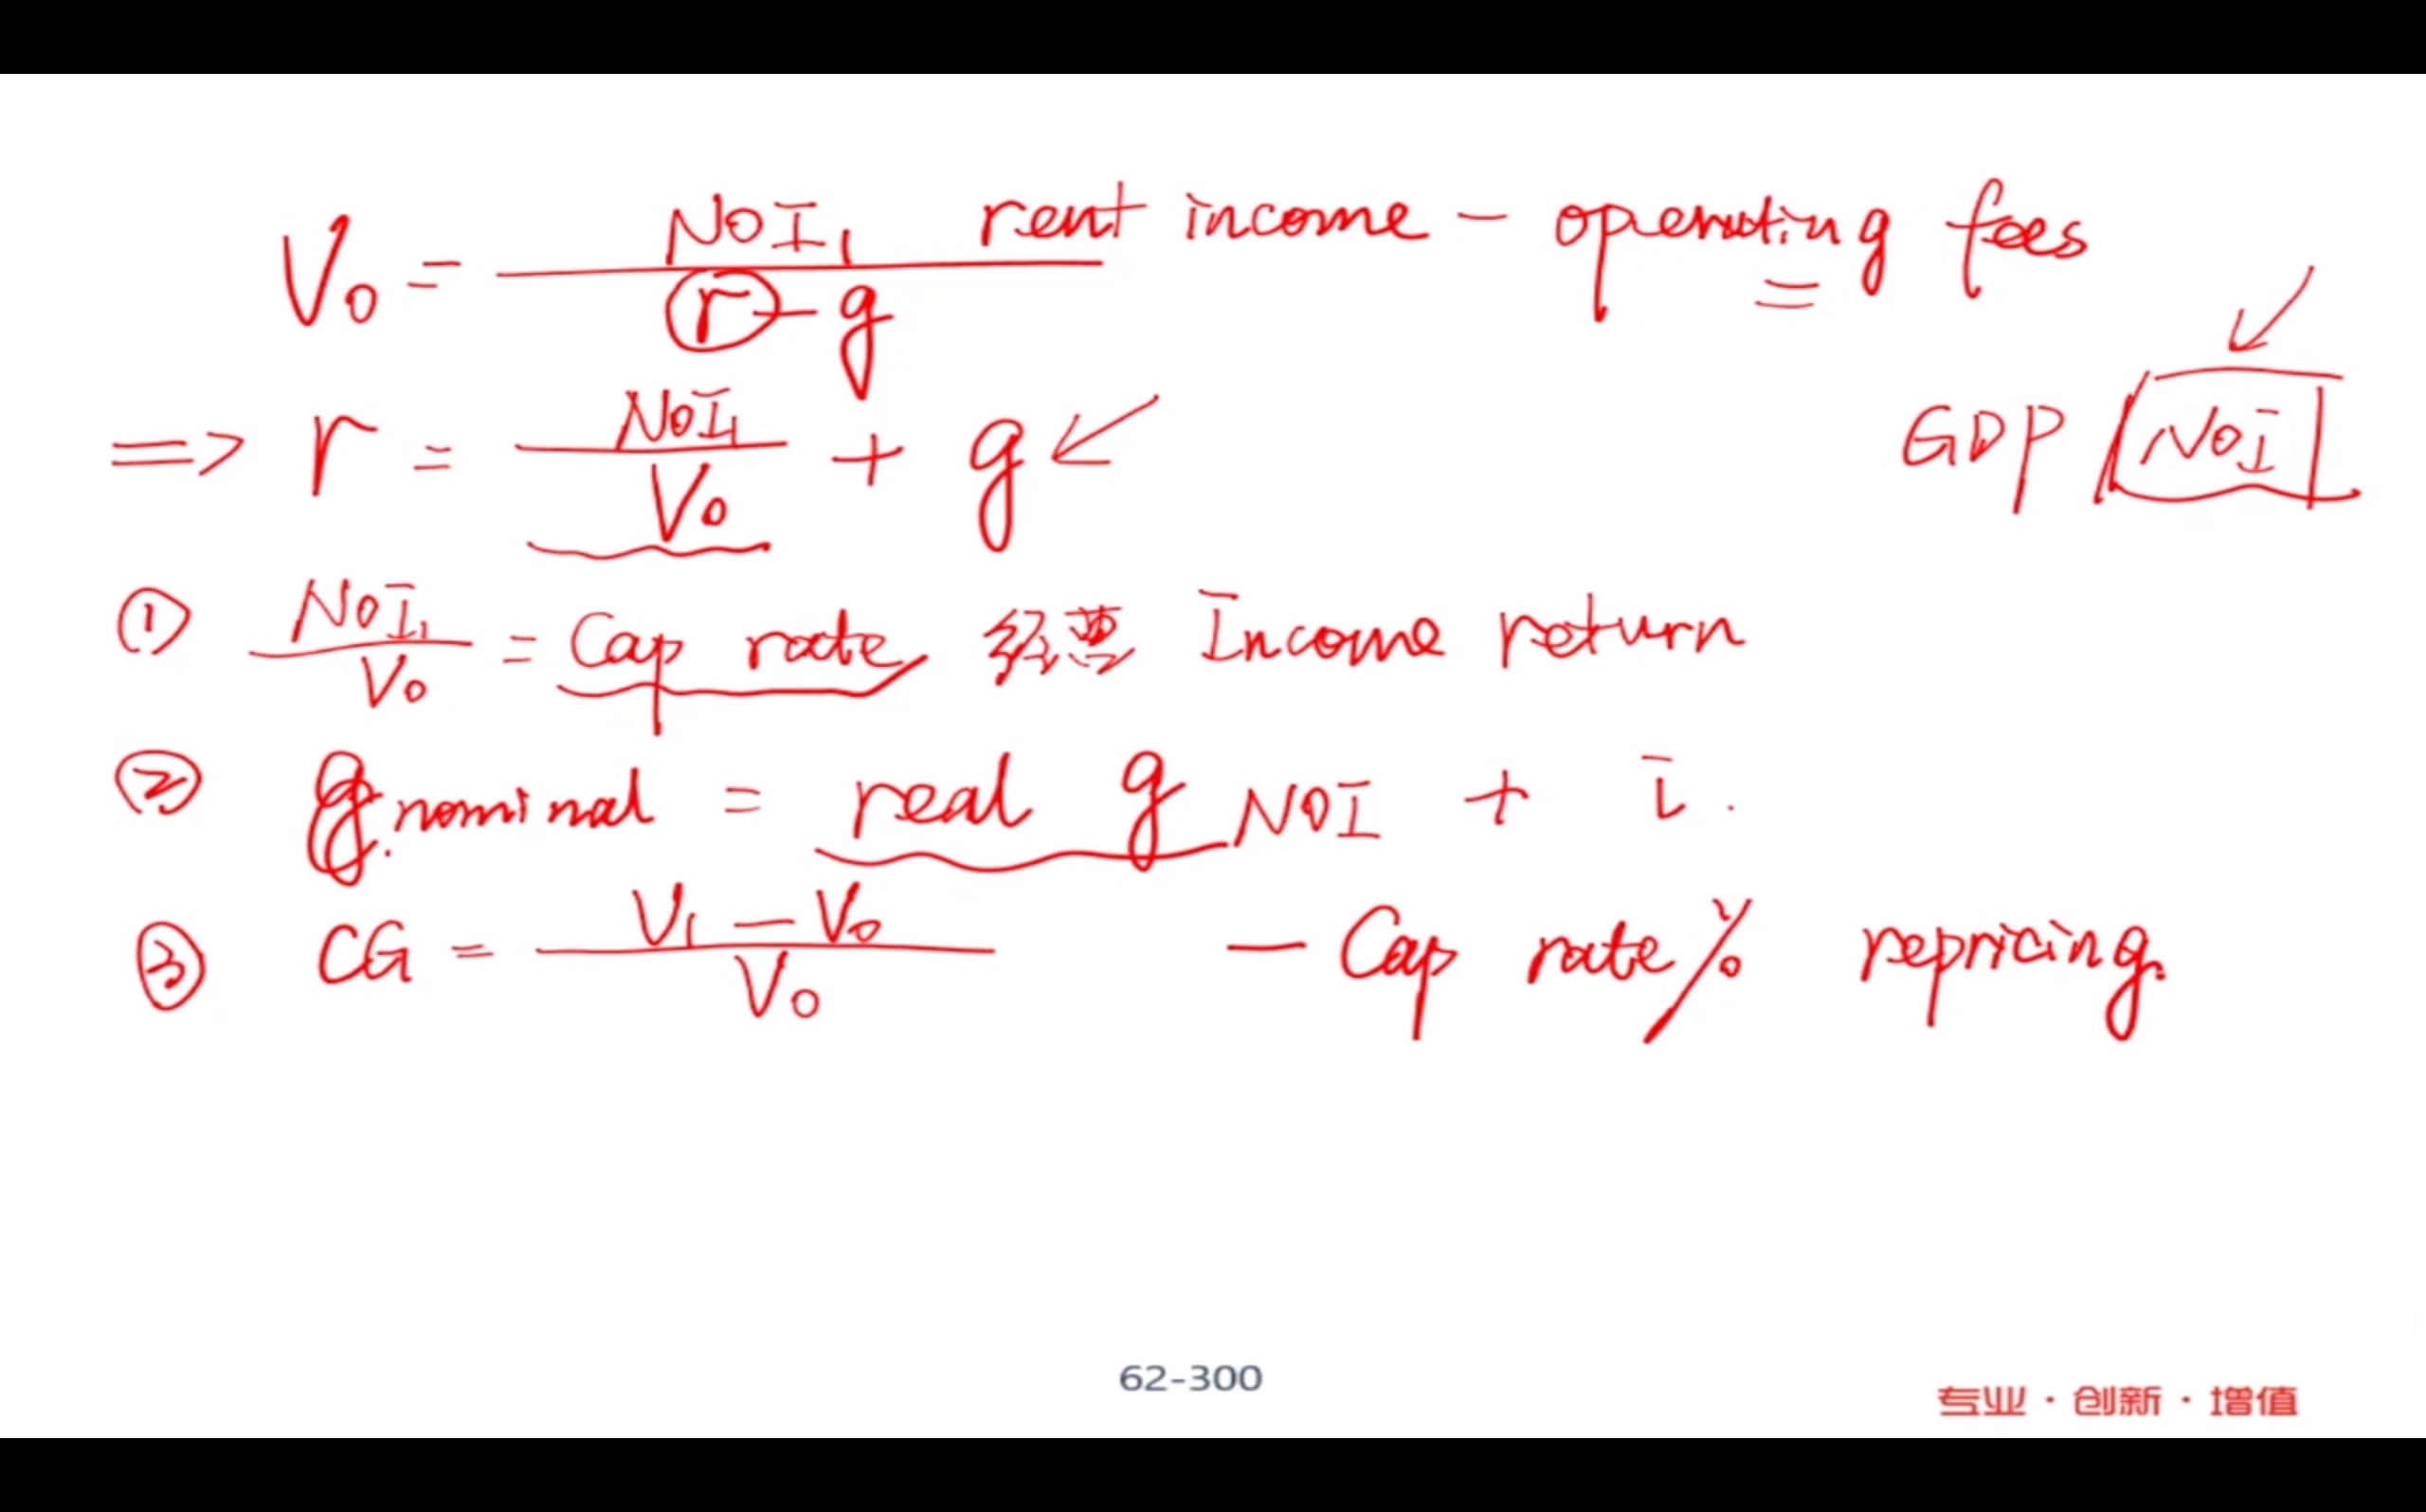 V₀ = NOI₁ / (r - g) rent income - operating fees
=> r = NOI₁ / V₀ + g
GDP NOI
① NOI₁ / V₀ = Cap rate 经营 Income return
② g nominal = real g NOI + i.
③ CG = (V₁ - V₀) / V₀ - Cap rate% repricing.
62-300
专业·创新·增值